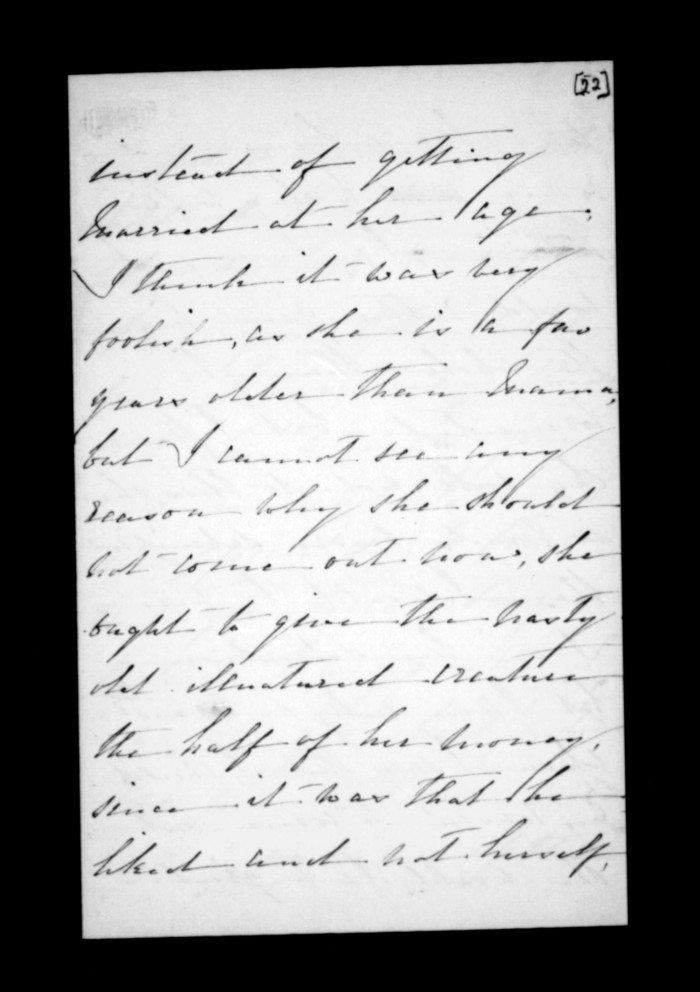 [22]
instead of getting
married at her age.
I think it was very
foolish, as she is a few
years older than Mama,
but I cannot see any
reason why she should
not come out now, she
ought to give the nasty
old illnatured creature
the half of her money,
since it was that he
liked and not herself,